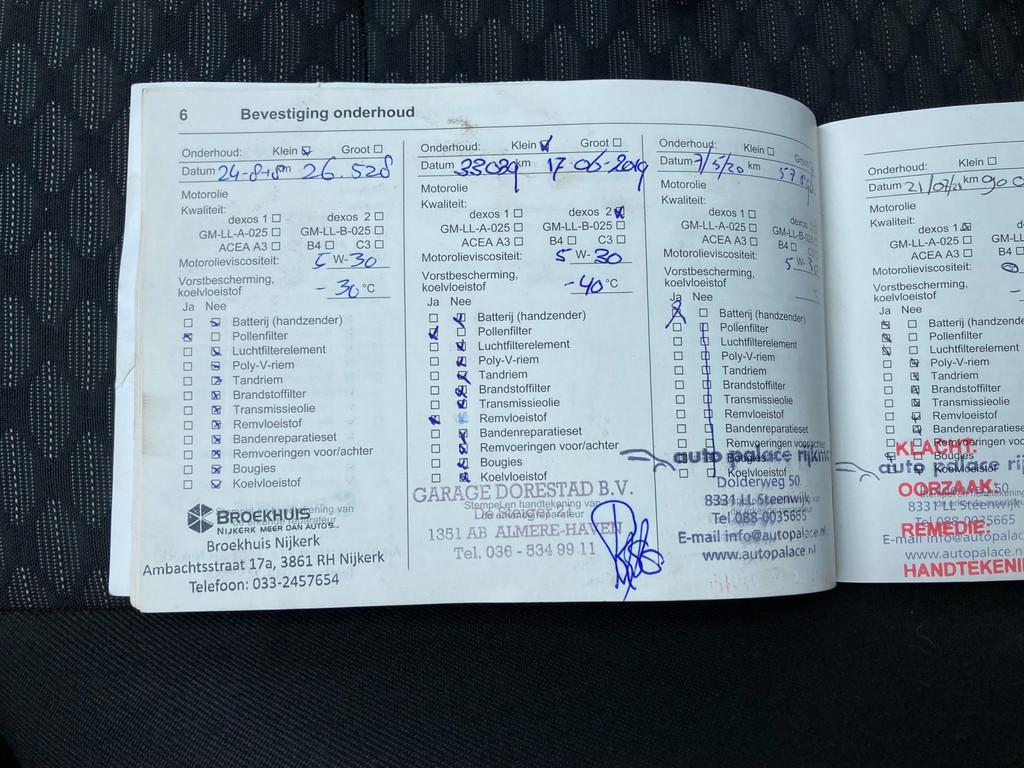 6 Bevestiging onderhoud
Onderhoud: Klein Groot
Datum 24-8-18 km 26.528
Motorolie
Kwaliteit:
dexos 1 dexos 2
GM-LL-A-025 GM-LL-B-025
ACEA A3 B4 C3
Motorolieviscositeit: 5 W-30
Vorstbescherming,
koelvloeistof -30 °C
Ja Nee
Batterij (handzender)
Pollenfilter
Luchtfilterelement
Poly-V-riem
Tandriem
Brandstoffilter
Transmissieolie
Remvloeistof
Bandenreparatieset
Remvoeringen voor/achter
Bougies
Koelvloeistof
BROEKHUIS
NIJKERK MEER DAN AUTO'S...
Broekhuis Nijkerk
Ambachtsstraat 17a, 3861 RH Nijkerk
Telefoon: 033-2457654
Onderhoud: Klein Groot
Datum 33029 km 17-06-2019
Motorolie
Kwaliteit:
dexos 1 dexos 2
GM-LL-A-025 GM-LL-B-025
ACEA A3 B4 C3
Motorolieviscositeit: 5 W-30
Vorstbescherming,
koelvloeistof -40 °C
Ja Nee
Batterij (handzender)
Pollenfilter
Luchtfilterelement
Poly-V-riem
Tandriem
Brandstoffilter
Transmissieolie
Remvloeistof
Bandenreparatieset
Remvoeringen voor/achter
Bougies
Koelvloeistof
GARAGE DORESTAD B.V.
Stempel en handtekening van
de erkende reparateur
1351 AB ALMERE-HAVEN
Tel. 036 - 534 99 11
Onderhoud: Klein
Datum 7/5/20 km
Motorolie
Kwaliteit:
dexos 1
GM-LL-A-025 GM-LL-B-
ACEA A3 B4 C3
Motorolieviscositeit: 5 W-
Vorstbescherming,
koelvloeistof °C
Ja Nee
Batterij (handzender)
Pollenfilter
Luchtfilterelement
Poly-V-riem
Tandriem
Brandstoffilter
Transmissieolie
Remvloeistof
Bandenreparatieset
Remvoeringen voor/achter
Bougies
Koelvloeistof
auto palace
Dolderweg 50
8331 LL Steenwijk
Tel 088-0035665
E-mail info@autopalace.n
www.autopalace.nl
Onderhoud: Klein
Datum 21/07/21 km
Motorolie
Kwaliteit:
dexos 1
GM-LL-A-025
ACEA A3 B4
Motorolieviscositeit:
Vorstbescherming,
koelvloeistof
Ja Nee
Batterij (handzende
Pollenfilter
Luchtfilterelement
Poly-V-riem
Tandriem
Brandstoffilter
Transmissieolie
Remvloeistof
Bandenreparatieset
Remvoeringen voo
Bougies
Koelvloeistof
KLACHT:
auto palace rij
OORZAAK:
8331 LL Steenwijk
Tel 088-0035665
REMEDIE:
E-mail info@autopalace.n
www.autopalace.n
HANDTEKENI